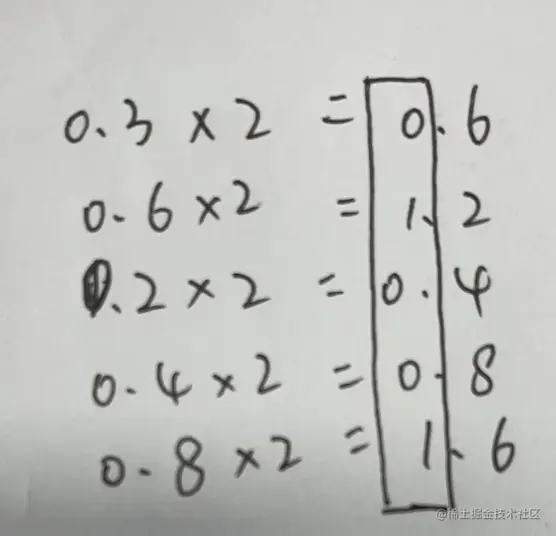 0.3 × 2 = 0.6
0.6 × 2 = 1.2
0.2 × 2 = 0.4
0.4 × 2 = 0.8
0.8 × 2 = 1.6
@稀土掘金技术社区